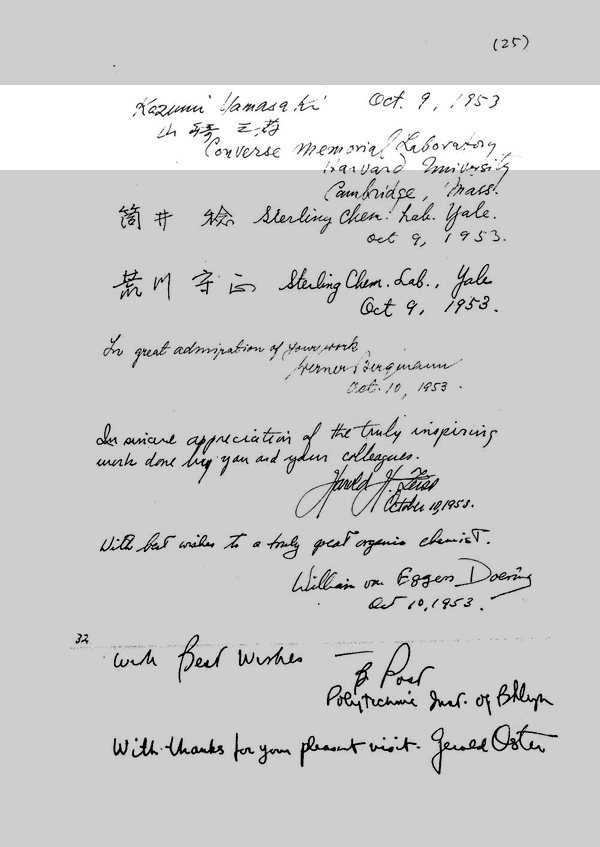 (25)
Kazumi Yamasaki Oct. 9, 1953
山崎 一
Converse Memorial Laboratory
Harvard University
Cambridge, Mass.
筒井 稔 Sterling Chem. Lab. Yale.
Oct 9, 1953.
荒川 守正 Sterling Chem. Lab., Yale
Oct 9, 1953.
In great admiration of your work
Werner Bergmann
Oct. 10, 1953.
In sincere appreciation of the truly inspiring
work done by you and your colleagues.
Harold H. Zeiss
October 10, 1953.
With best wishes to a truly great organic chemist.
William von Eggers Doering
Oct 10, 1953.
32
With Best Wishes — B Post
Polytechnic Inst. of Bklyn
With thanks for your pleasant visit. Gerald Oster